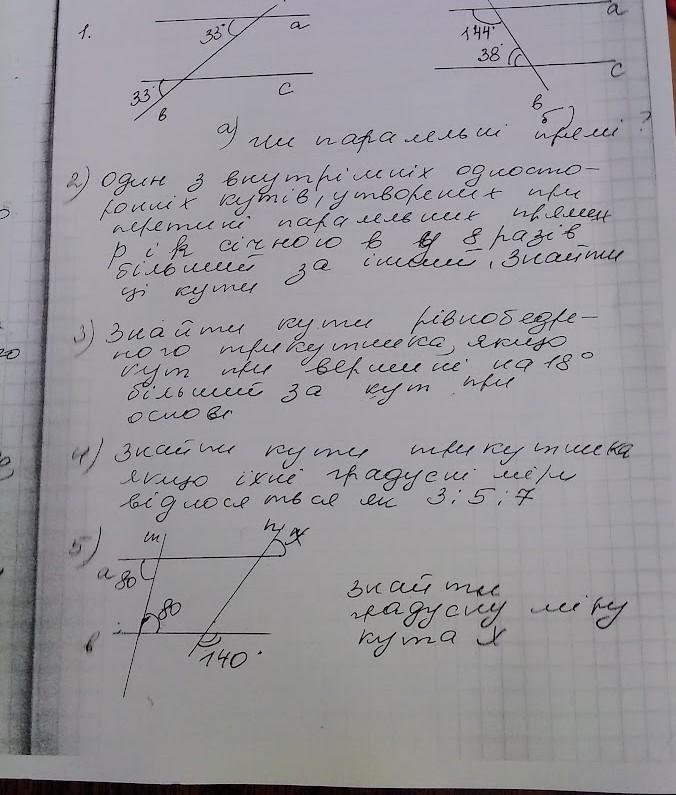 1.
33° a
33° c
в
144° a
38° c
в
а) б)
чи паралельні прямі ?
2) Один з внутрішніх односто-
ронніх кутів, утворених при
перетині паралельних прямих
р і к січною в 8 разів
більший за інший, знайти
ці кути
3) Знайти кути рівнобедре-
ного трикутника, якщо
кут при вершині на 18°
більший за кут при
основі
4) Знайти кути трикутника
якщо їхні градусні міри
відносяться як 3:5:7
5) m n x
a 80
в 80
140°
знайти
градусну міру
кута х